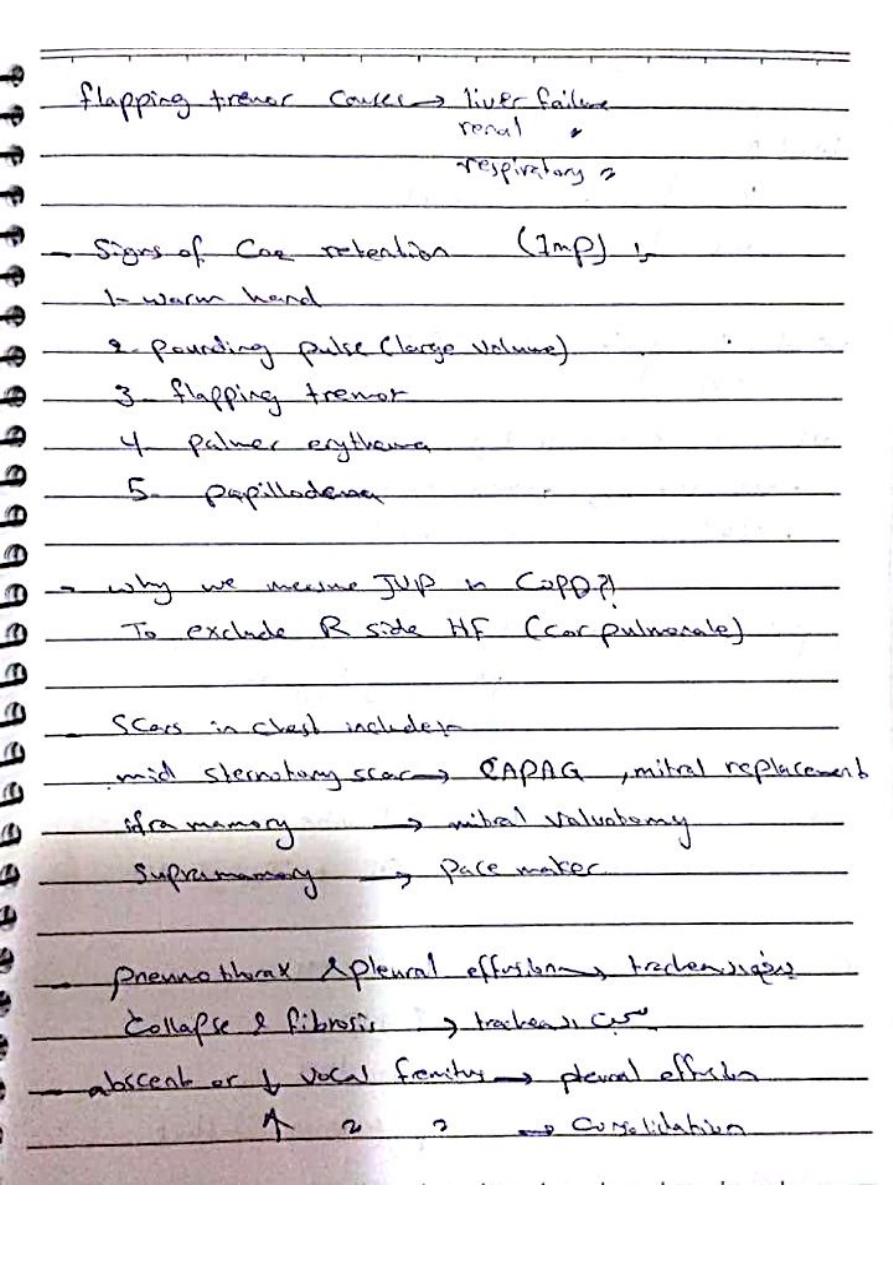 flapping tremor causes → liver failure
renal 〃
respiratory 〃
- Signs of Co2 retention (Imp) :-
1- warm hand
2- pounding pulse (large volume)
3- flapping tremor
4- palmer erythema
5- papillodema
- why we measure JVP in COPD?!
To exclude R side HF (cor pulmonale)
- Scars in chest include:-
mid sternotomy scar → CAPAG, mitral replacement
ifra mamory → mitral valvotomy
Supramamory → pace maker
- pneumothorax & pleural effusion → trachea
Collapse & fibrosis → trachea
- abscent or ↓ vocal fremitus → pleural effusion
↑ 〃 〃 → Consolidation